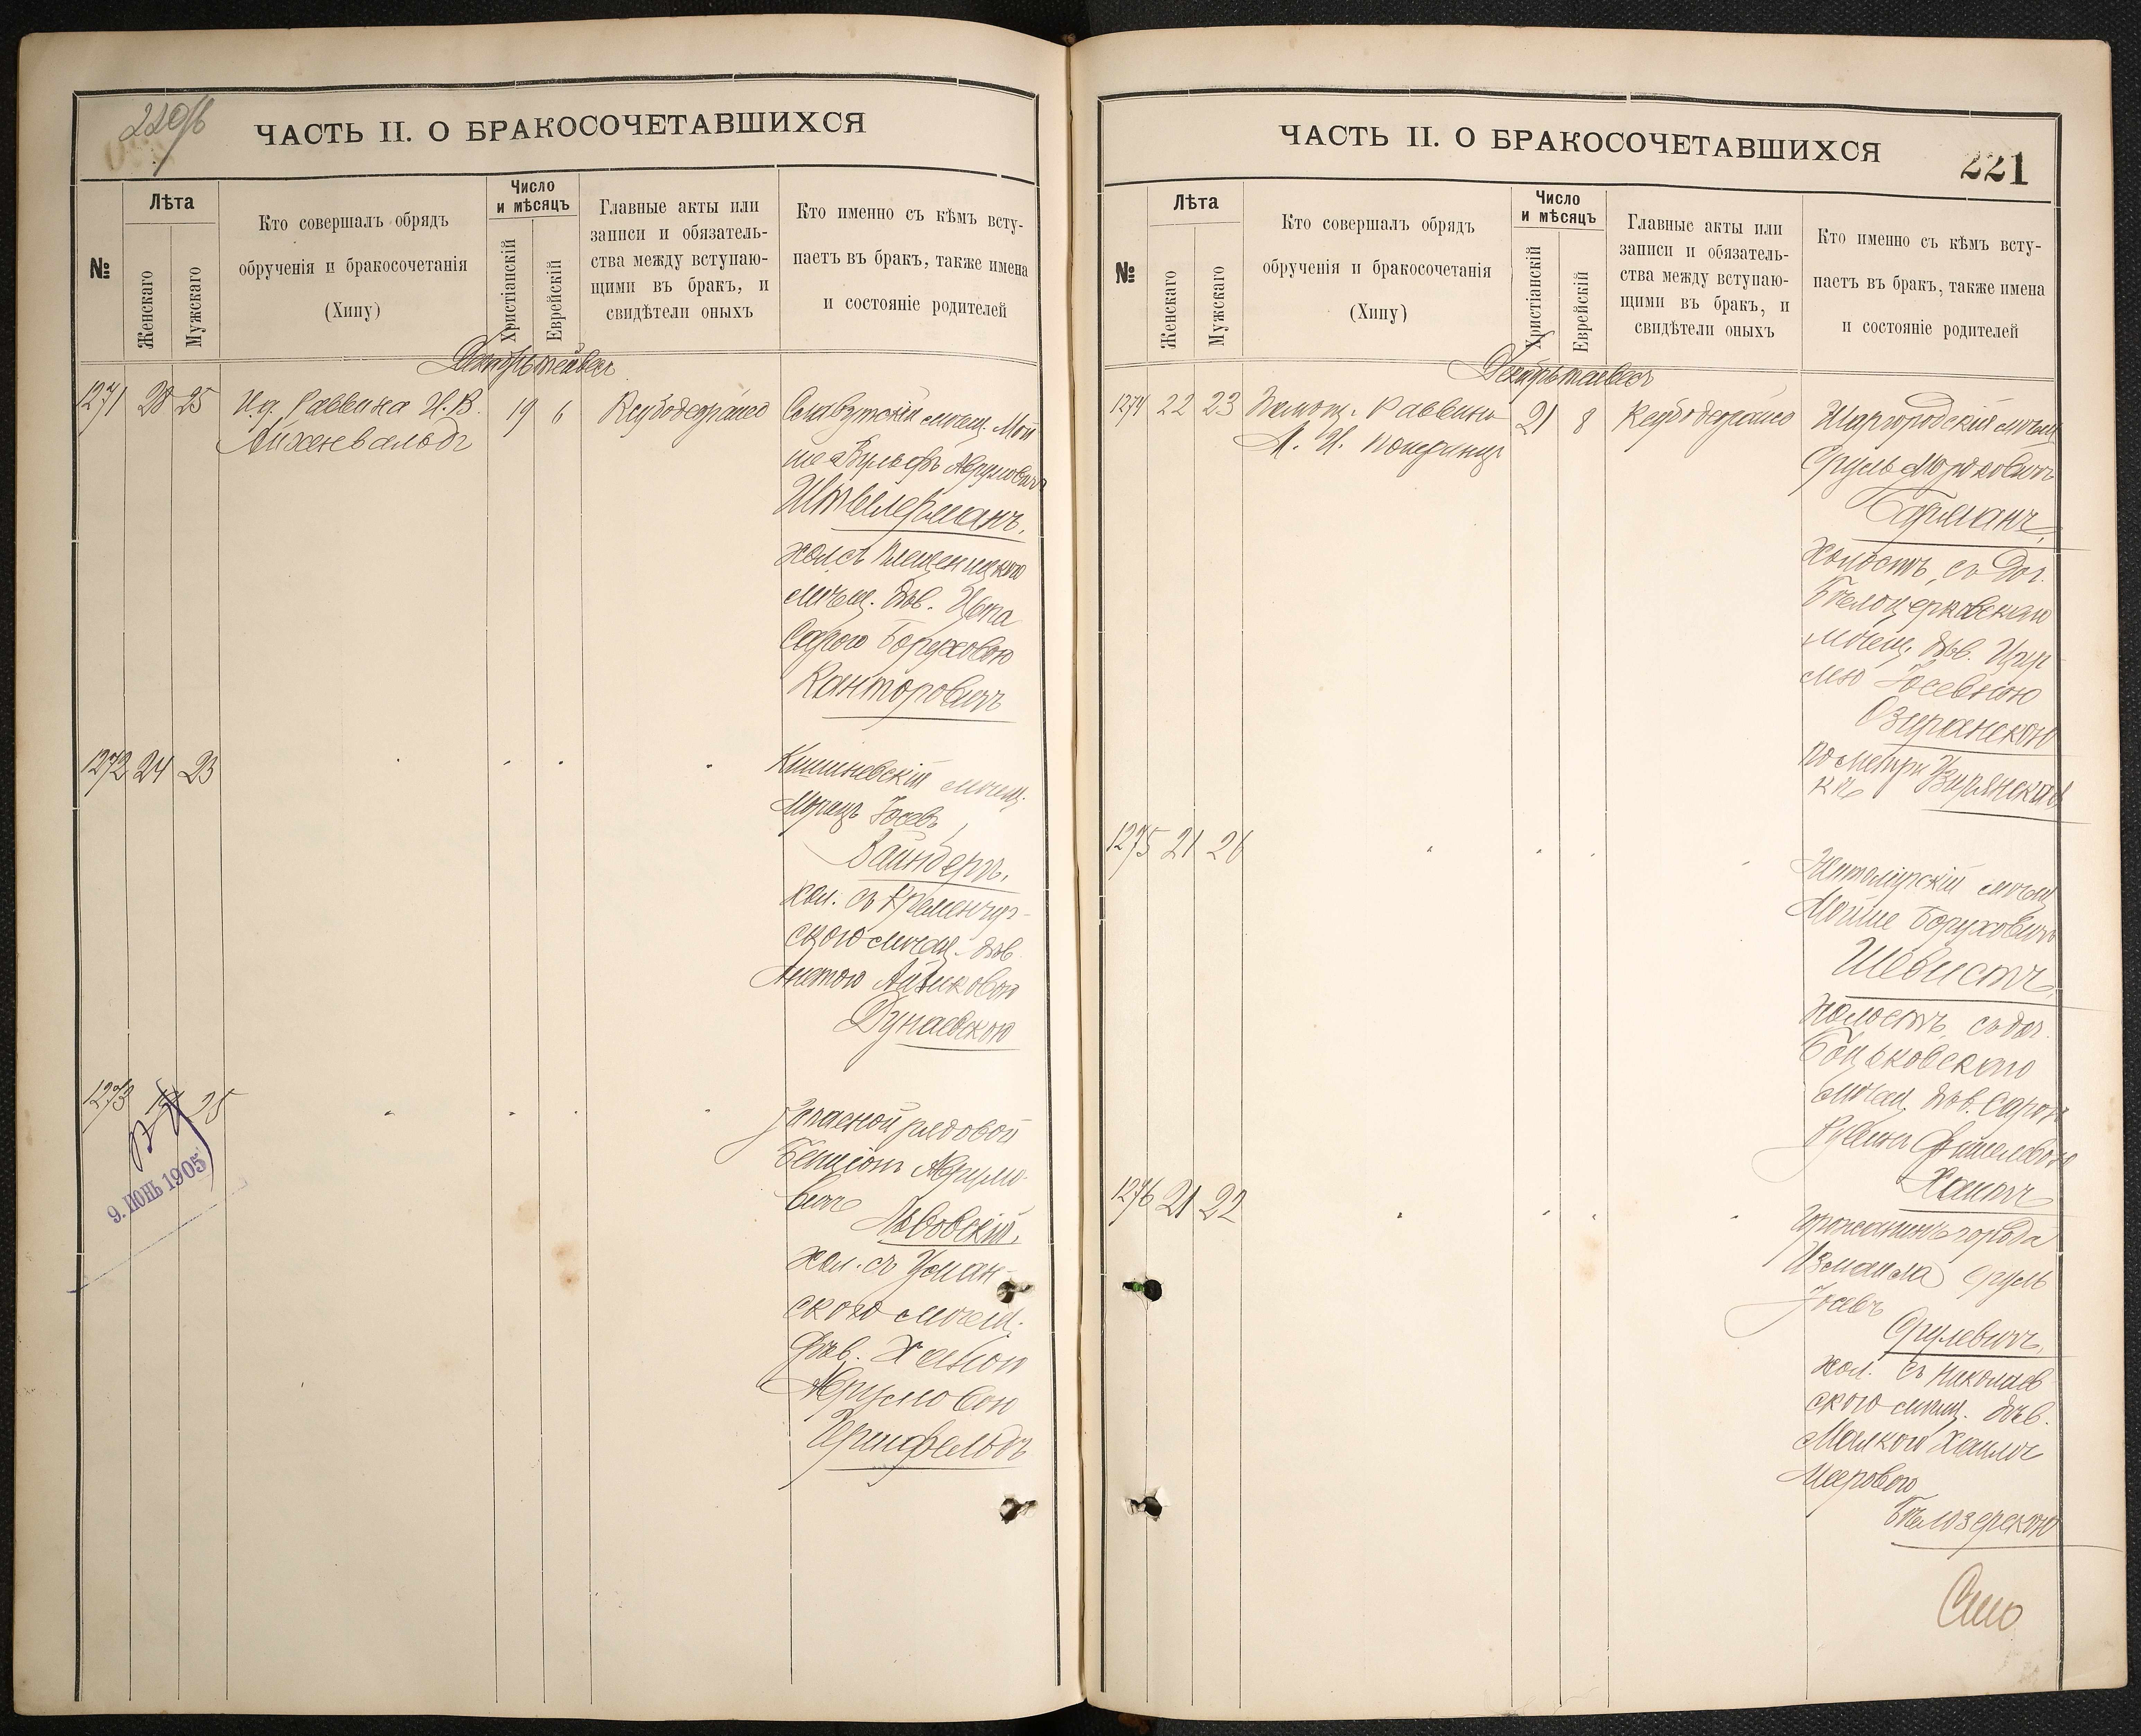 220/б
ЧАСТЬ II. О БРАКОСОЧЕТАВШИХСЯ
№
Лѣта
Женскаго
Мужскаго
Кто совершалъ обрядъ
обрученія и бракосочетанія
(Хипу)
Число
и мѣсяцъ
Христіанскій
Еврейскій
Главные акты или
записи и обязатель-
ства между вступаю-
щими въ бракъ, и
свидѣтели оныхъ
Кто именно съ кѣмъ всту-
паетъ въ бракъ, также имена
и состояніе родителей
Декабрь тейвес
1271 20 25
И.д. Раввина И. В.
Айхенвальдъ
19 6
Ксубодеорайсо
Славутскій мѣщ. Мой
ше Вульфъ Аврумовичъ
Штеллерманъ,
хол съ
мѣщ. дѣв.
Боруховою
Канторовичъ
1272 24 23
Кишиневскій мѣщ.
Морицъ Іосевъ
Вайнбергъ,
хол. съ Кременчуг-
ского мѣщ. дѣв.
Анетою Айзиковою
Дунаевскою
1273 25
9. ІЮНЬ 1905
Запасной рядовой
Бенціонъ Аврумо-
вичъ
Львовскій,
хол. съ Уман-
ского мѣщ.
дѣв. Хавою
Аврумовою
Гринфельдъ
ЧАСТЬ II. О БРАКОСОЧЕТАВШИХСЯ
221
№
Лѣта
Женскаго
Мужскаго
Кто совершалъ обрядъ
обрученія и бракосочетанія
(Хипу)
Число
и мѣсяцъ
Христіанскій
Еврейскій
Главные акты или
записи и обязатель-
ства между вступаю-
щими въ бракъ, и
свидѣтели оныхъ
Кто именно съ кѣмъ всту-
паетъ въ бракъ, также имена
и состояніе родителей
Декабрь тейвес
1274 22 23
Помощ. Раввина
А. И.
21 8
Ксубодеорайсо
Шаргородскій мѣщ
Сруль Мордковичъ
Барманъ,
Холостъ, съ доч.
Бѣлоцерковскаго
мѣщ. дѣв. Цур-
лею Іосевною
Озирянскою
по метри
кѣ Изирянская
1275 21 26
Житомірскій мѣщ
Мойше Боруховичъ
Шевистъ,
Холостъ, съ доч.
мѣщ. дѣв. Сарою
Рувина Фишелевою
Хаитъ
1276 21 22
Гражданинъ города
Измаила Сруль
Іосевъ
Срулевичъ,
хол. съ Николаев
ского мѣщ. дѣв.
Малкою
Мееровою
Бѣлозерскою